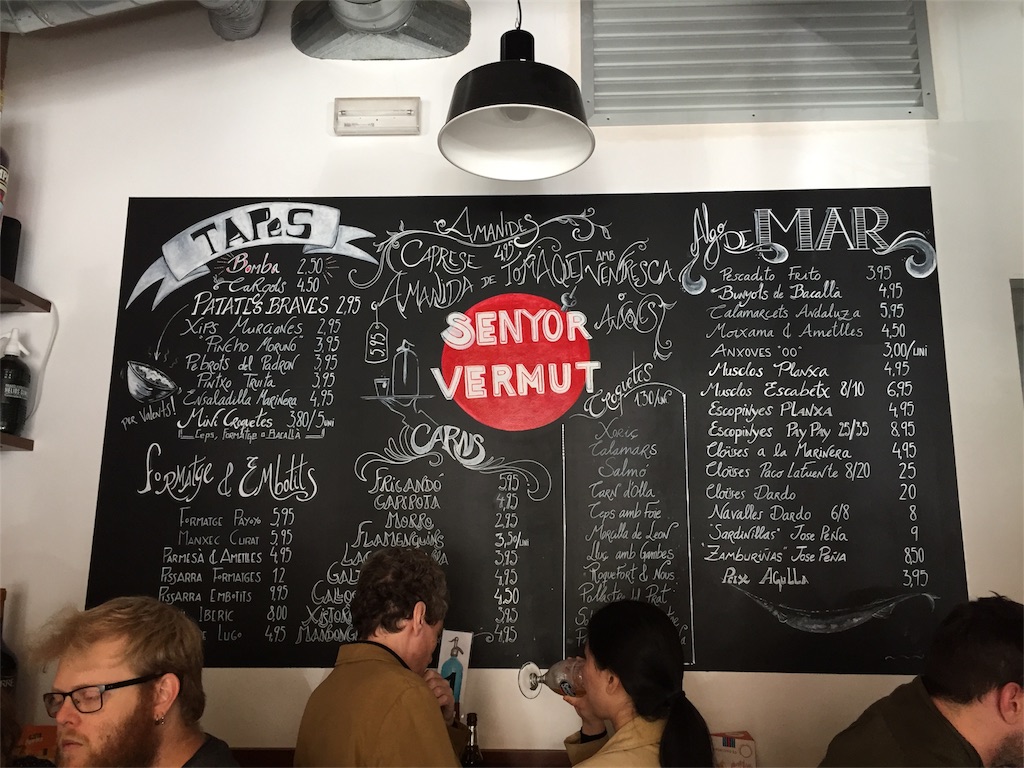 TAPES
Bomba 2,50
CARgols 4.50
PATATES BRAVES 2,95
XIPS MURCIANES 2,95
"PINCHO MORUNO" 3,95
PEBROTS del PADRÓN 3,95
PINTXO TRUITA 3,95
ENSALADILLA MARINERA 4,95
MINI CROQUETES 3,80/5UNI
CEPS, FORMATGE O BACALLÀ
PER VALENTS!
FORMATGE & EMBOTITS
FORMATGE PAYOYO 5,95
MANXEC CURAT 5,95
PARMESÀ & AMETLLES 4,95
PISSARRA FORMATGES 12
PISSARRA EMBOTITS 9,95
IBERIC 8,00
LUGO 4,95
AMANIDES
CAPRESE 4,95
AMANIDA DE TOMÀQUET AMB VENTRESCA
ANXOVES
5,95
SENYOR
VERMUT
CARNS
FRICANDÓ 5,95
CAPIPOTA 4,85
MORRO 2,95
FLAMENQUINS 3,50/UNI
3,95
4,95
4,50
3,95
4,95
Croquetes
1,30/UN
XORIÇ
CALAMARS
SALMÓ
CARN d'OLLA
CEPS amb foie
MORCILLA de LEON
LLUÇ amb Gambes
"ROQUEFORT & NOUS
POLLASTRE del PRAT
Algo DE MAR
PESCADITO FRITO 3,95
BUNYOLS de BACALLÀ 4,95
CALAMARCETS ANDALUZA 5,95
MOIXAMA & AMETLLES 4,50
ANXOVES "OO" 3,00/UNI
MUSCLOS PLANXA 4,95
MUSCLOS ESCABETX 8/10 6,95
ESCOPINYES PLANXA 4,95
ESCOPINYES PAY PAY 25/35 8,95
CLOÏSES A LA MARINERA 4,95
CLOÏSES PACO LAFUENTE 8/20 25
CLOÏSES DARDO 20
NAVALLES DARDO 6/8 8
"SARDINILLAS" JOSE PEÑA 9
"ZAMBURIÑAS" JOSE PEÑA 8,50
PEIX AGULLA 3,95